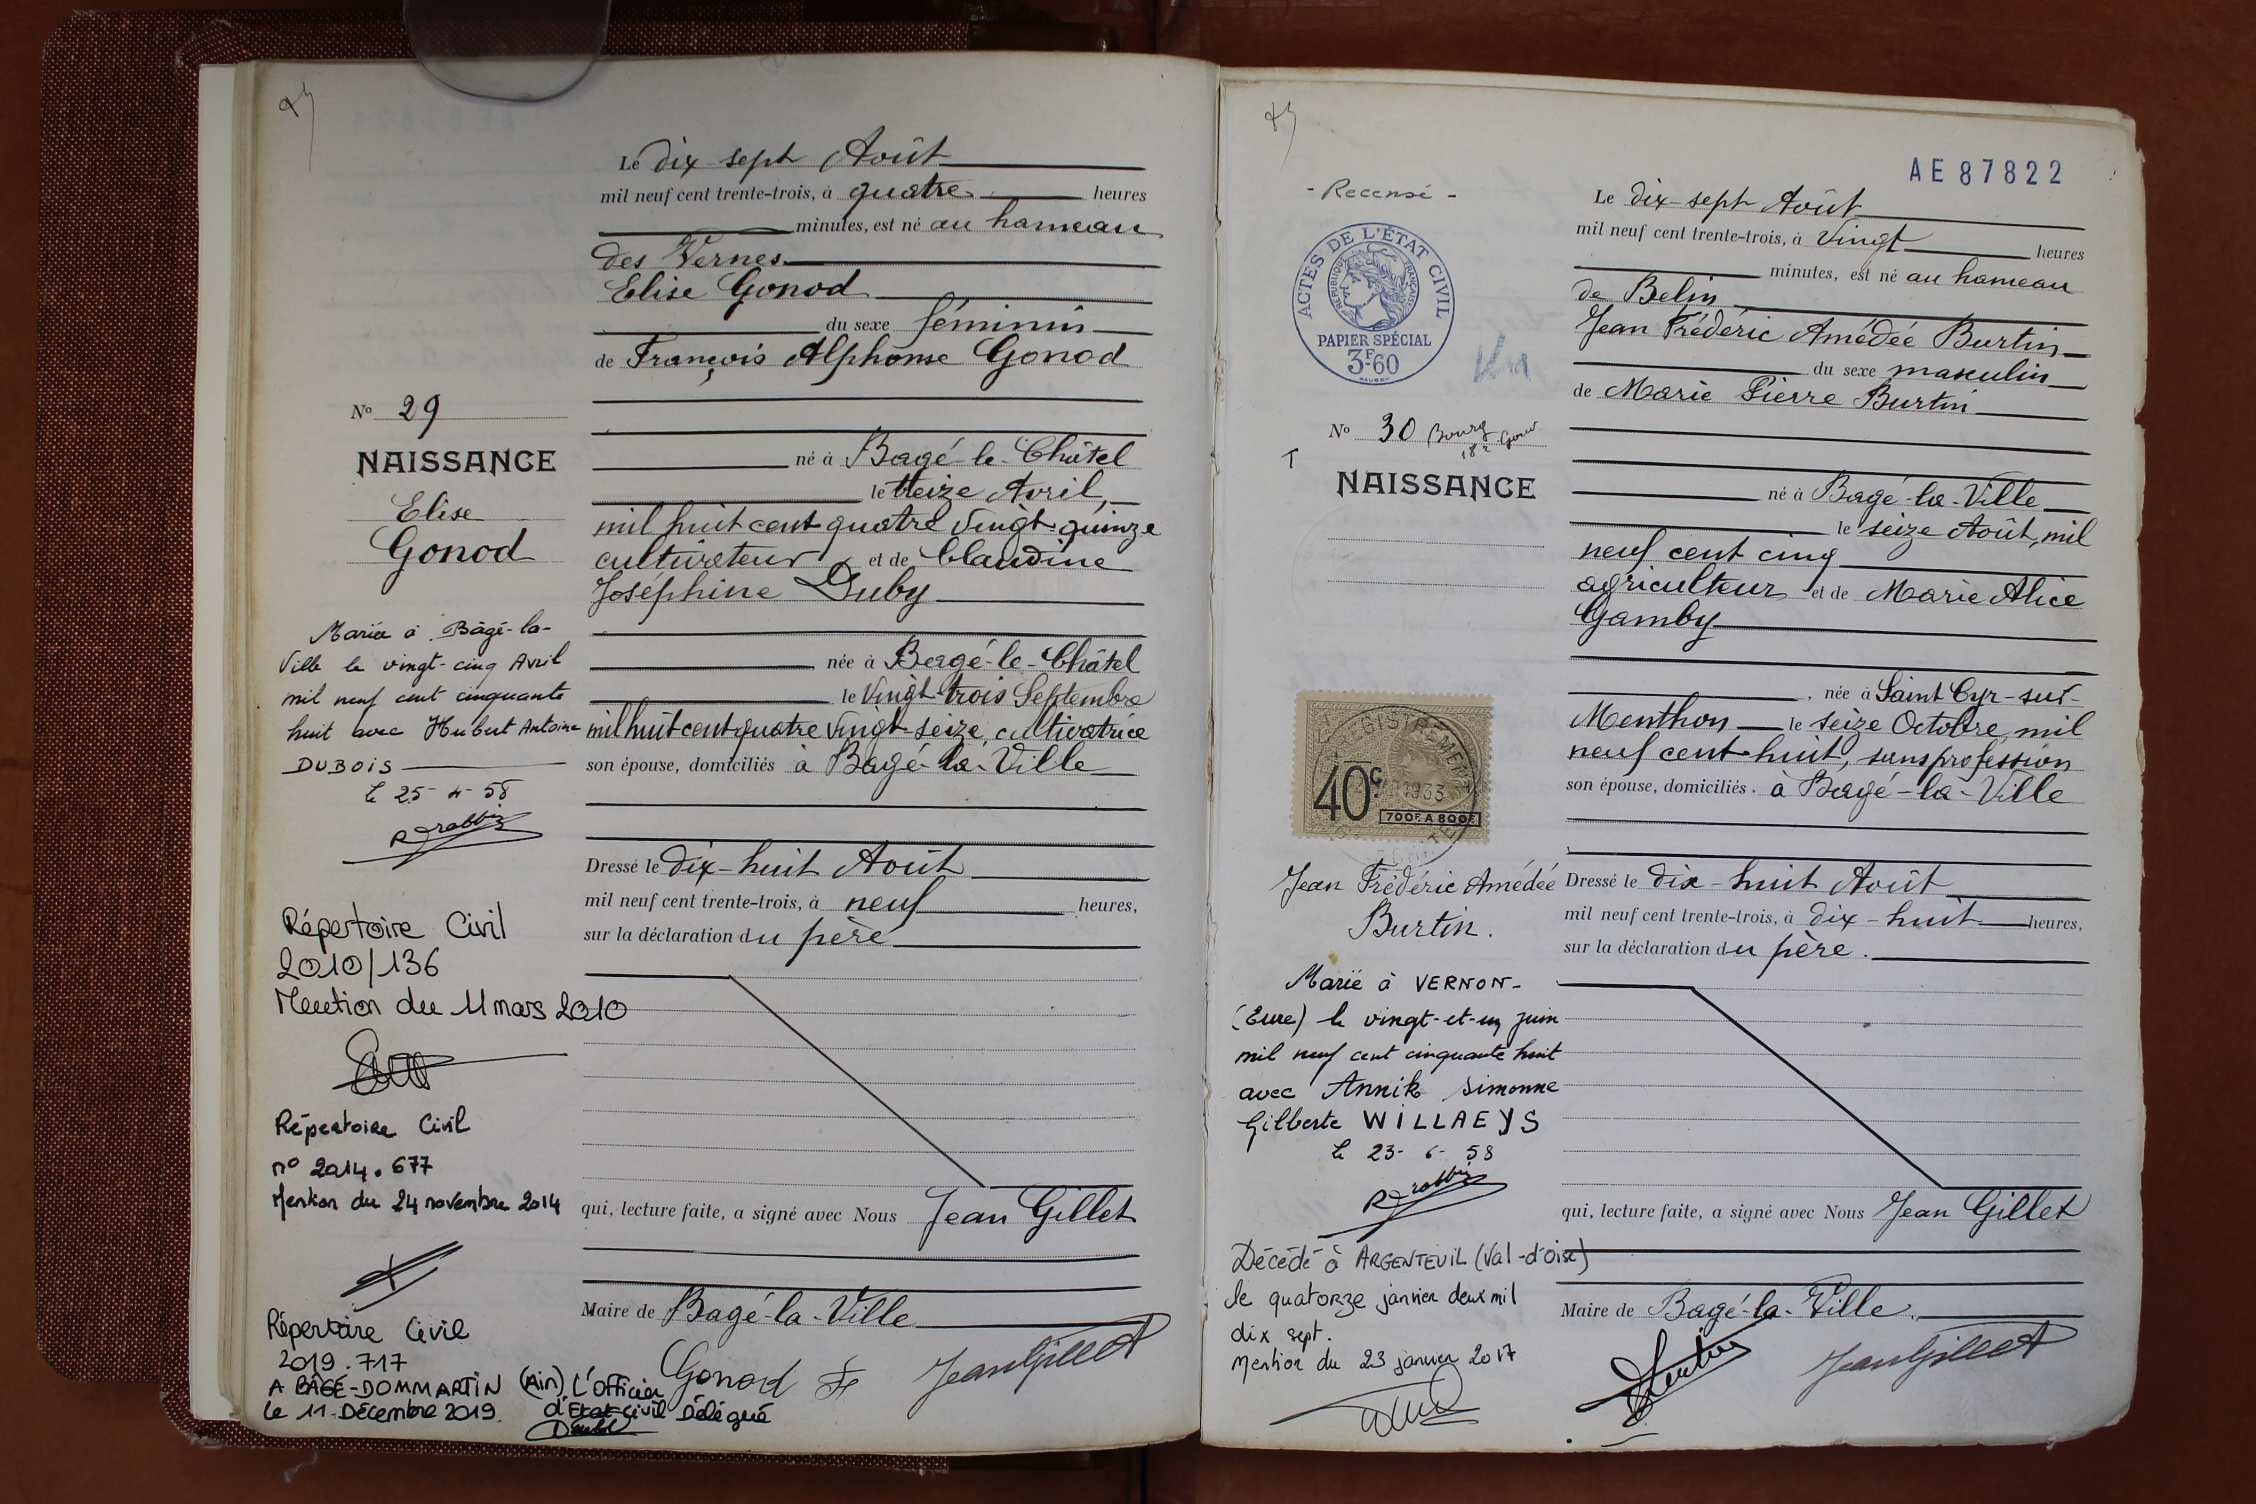 Le dix-sept Août
mil neuf cent trente-trois, à quatre heures
minutes, est né au hameau
des Vernes
Elise Gonod
du sexe féminin
de François Alphonse Gonod
N° 29
NAISSANCE
Elise
Gonod
né à Bagé-le-Châtel
le treize Avril,
mil huit cent quatre vingt-quinze
cultivateur et de Claudine
Joséphine Duby
née à Bagé-le-Châtel
le vingt-trois Septembre
mil huit cent quatre vingt-seize, cultivatrice
son épouse, domiciliés à Bagé-la-Ville
Dressé le dix-huit Août
mil neuf cent trente-trois, à neuf heures,
sur la déclaration du père
qui, lecture faite, a signé avec Nous Jean Gillet
Maire de Bagé-la-Ville
Gonod Jean Gillet
Mariée à Bâgé-la-
Ville le vingt-cinq Avril
mil neuf cent cinquante
huit avec Hubert Antoine
DUBOIS
le 25-4-58
Répertoire Civil
2010/136
Mention du 11 mars 2010
Répertoire Civil
n° 2014.677
Mention du 24 novembre 2014
Répertoire Civil
2019.717
A BÂGÉ-DOMMARTIN (Ain) L'Officier
le 11 Décembre 2019. d'Etat civil Délégué
AE 87822
- Recensé -
ACTES DE L'ÉTAT CIVIL
RÉPUBLIQUE FRANÇAISE
PAPIER SPÉCIAL
3F60
Le dix-sept Août
mil neuf cent trente-trois, à vingt heures
minutes, est né au hameau
de Belin
Jean Frédéric Amédée Burtin
du sexe masculin
de Marie Pierre Burtin
N° 30 Bourg
NAISSANCE
né à Bagé-la-Ville
le seize Août, mil
neuf cent cinq
agriculteur et de Marie Alice
Gamby
, née à Saint Cyr-sur-
Menthon le seize Octobre, mil
neuf cent huit, sans profession
son épouse, domiciliés. à Bagé-la-Ville
40c
1933
700F. A 800F.
Jean Frédéric Amédée
Burtin.
Dressé le dix-huit Août
mil neuf cent trente-trois, à dix-huit heures,
sur la déclaration du père.
qui, lecture faite, a signé avec Nous Jean Gillet
Maire de Bagé-la-Ville.
Jean Gillet
Marié à VERNON-
(Eure) le vingt-et-un juin
mil neuf cent cinquante huit
avec Annik Simonne
Gilberte WILLAEYS
le 23-6-58
Décédé à ARGENTEUIL (Val-d'oise)
le quatorze janvier deux mil
dix sept.
Mention du 23 janvier 2017